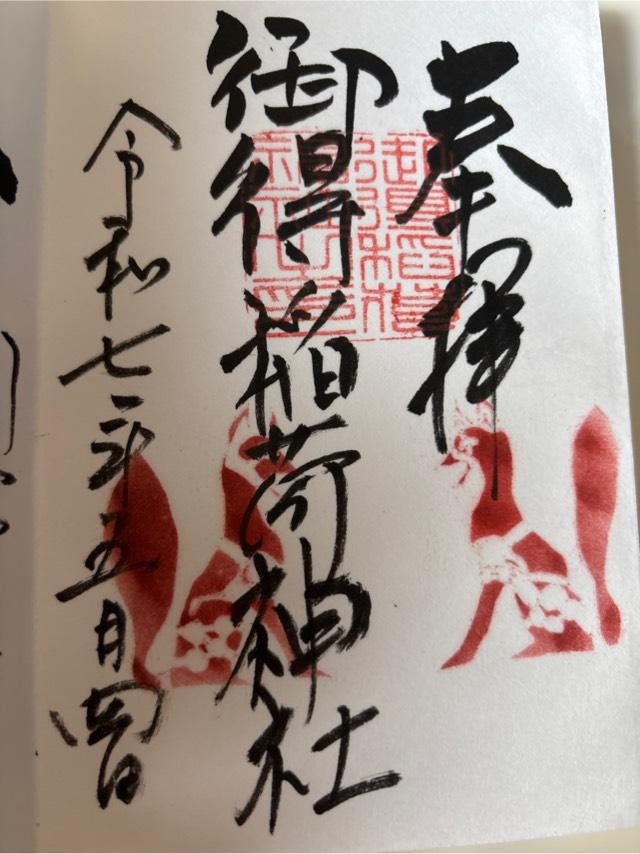 奉拝
御得稲荷神社
令和七年五月四日